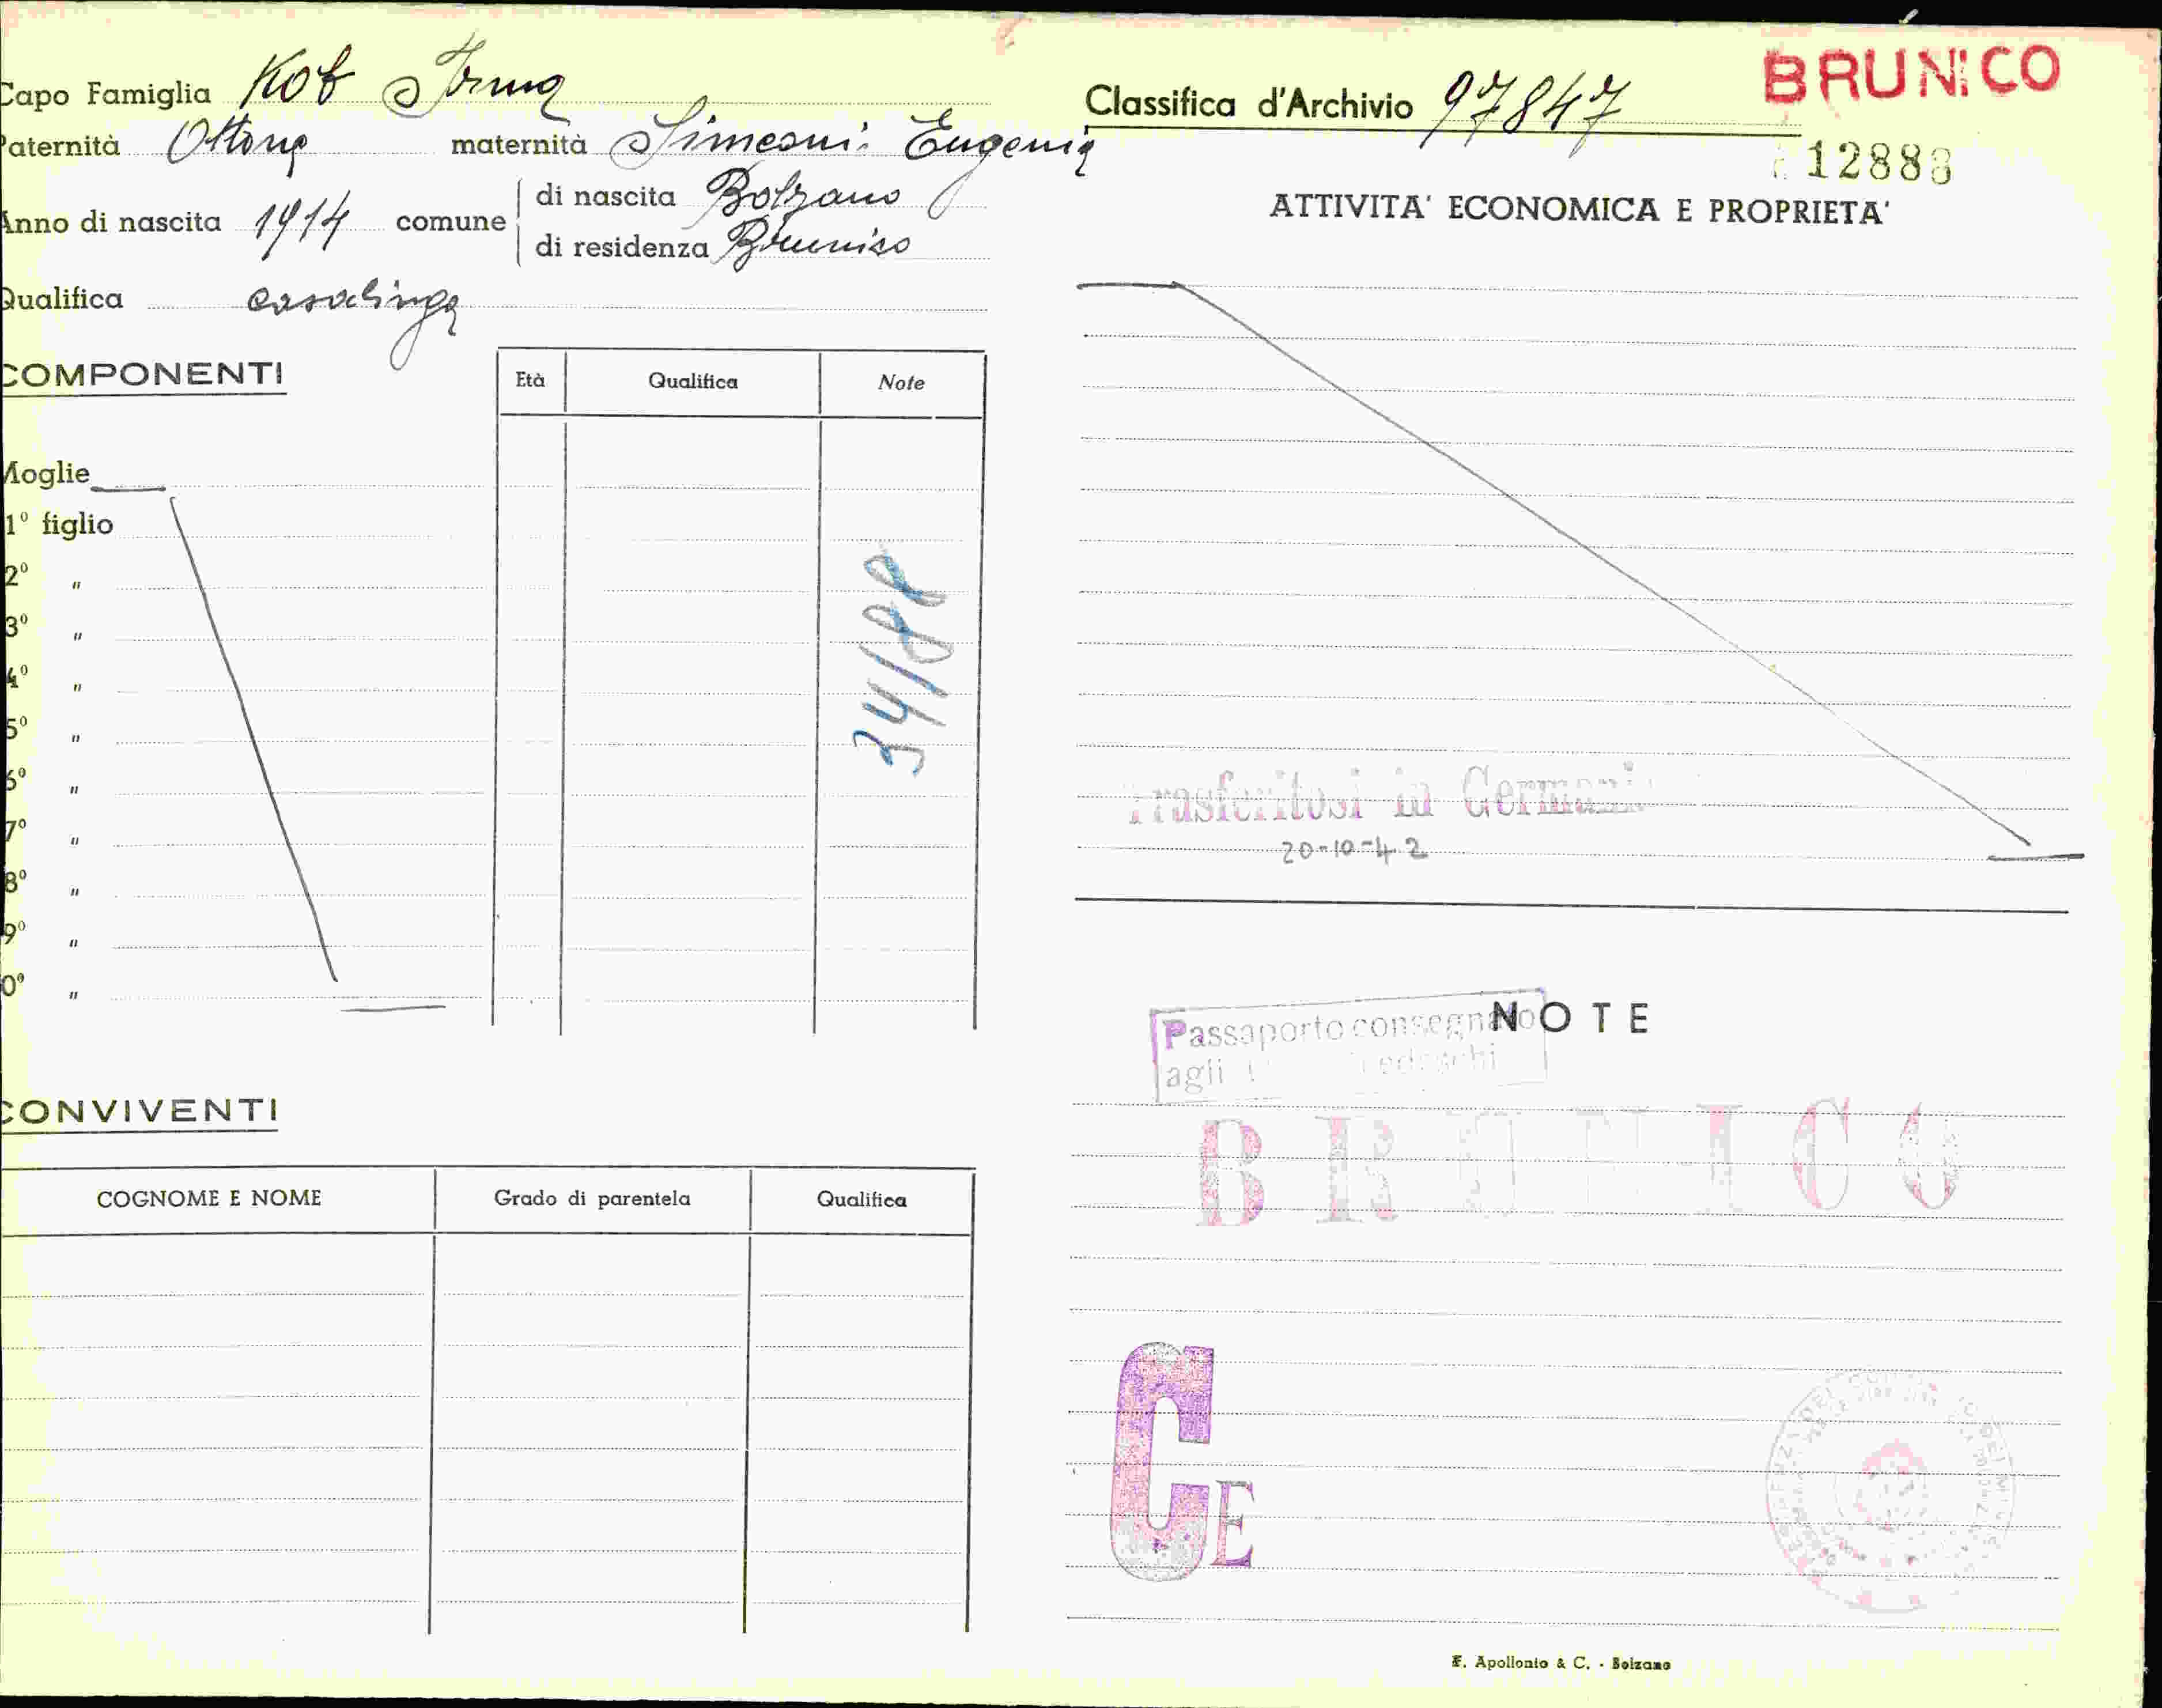 Capo Famiglia Kob Irma
Paternità Ottone maternità Simeoni Eugenia
Anno di nascita 1914 comune di nascita Bolzano
di residenza Brunico
Qualifica casalinga
COMPONENTI
Età Qualifica Note
Moglie
1° figlio
2° "
3° "
4° "
5° "
6° "
7° "
8° "
9° "
0° "
34/88
CONVIVENTI
COGNOME E NOME Grado di parentela Qualifica
BRUNICO
Classifica d'Archivio 97847
12888
ATTIVITA' ECONOMICA E PROPRIETA'
Trasferitosi in Germania
20-10-42
NOTE
Passaporto consegnato
agli Tedeschi
BRUNICO
CE
F. Apollonio & C. - Bolzano